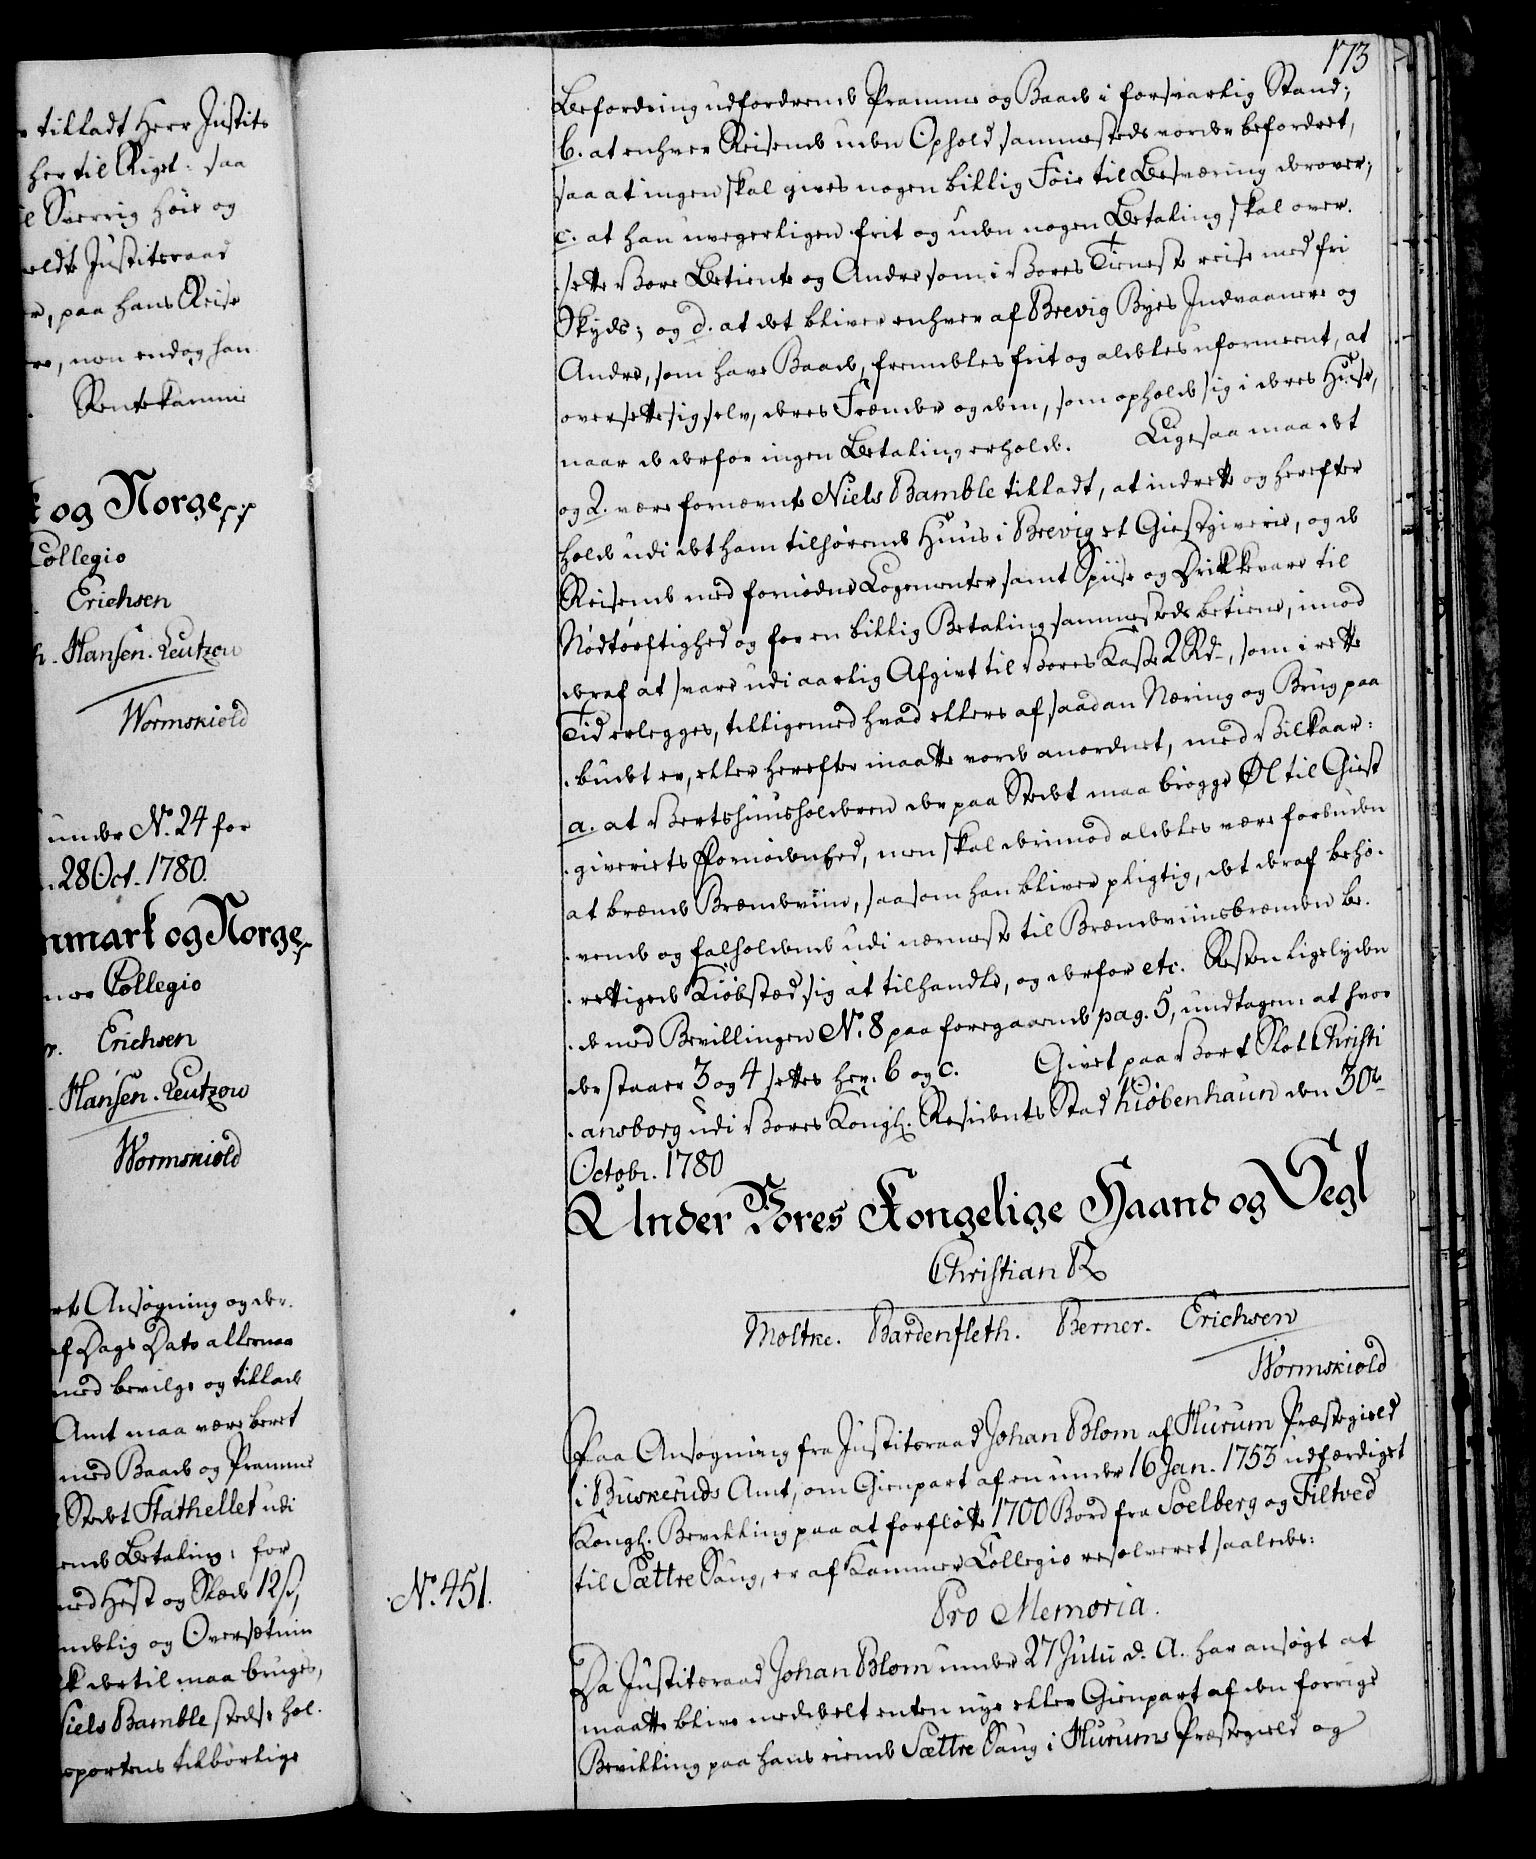 tilladt Herr Justits
her til Riget: saa
Sverrig høie og
meldte Justitsraad
paa hans Reise
men endog han
Rentekammer
og Norge p.p.
Collegio
Erichsen
Hansen. Leutzow
Wormskiold
under No. 24 for
28 Oct. 1780.
nmark og Norge
Collegio
Erichsen
Hansen. Leutzow
Wormskiold
Ansøgning og der-
af Dags Dato allernaa
med bevilge og tillade
Amt maa være beret
med Baade og Pramme
Stedet Stathellet udi
ende Betaling: for
med Hest og Slæde 12 ß,
endelig og Oversætnin
dertil maa bruges,
Niels Bamble stedse hol-
sportens tilbørlige
173
Befordring udfordrende Pramme og Baade i forsvarlig Stand;
b. at enhver Reisende uden Ophold sammesteds vorder befordret,
saa at ingen skal gives nogen billig Føie til Besværing derover;
c. at han uvegerligen frit og uden nogen Betaling skal over-
sette Vore Betiente og Andre som i Vores Tieneste reise med fri
Skyds; og d. at det bliver enhver af Brevig Byes Indvaanere og
Andre, som have Baade, fremdeles frit og aldeles uformeent, at
oversette sig selv, deres Fremder og dem, som opholde sig i deres Huse,
naar de derfor ingen Betaling erholde. Ligesaa maa det
og 2. være fornevnte Niels Bamble tilladt, at indrette og herefter
holde udi det ham tilhørende Huus i Brevig et Giestgiverie, og de
Reisende med fornødne Logementer samt Spiise og Drikkevare til
Nødtørftighed og for en billig Betaling sammesteds betiene, imod
deraf at svare udi aarlig Afgivt til Vores Kasse 2 Rd, som i rette
Tid erlegges, tilligemed hvad ellers af saadan Næring og Brug paa
budet er, eller herefter maatte vorde anordnet, med Vilkaar:
a. at Vertshuusholderen der paa Stedet maa brygge Øl til Giest
giveriets Fornødenhed, men skal derimod aldeles være forbuden
at brænde Brændeviin, saasom han bliver pligtig, det deraf behø-
vende og falholdende udi nærmeste til Brændeviinsbrænden be-
rettigede Kiøbsted sig at tilhandle, og derfor etc. Resten ligelyden
de med Bevillingen No. 8 paa foregaaende pag. 5, undtagen: at hvor
der staaer 3 og 4 settes her: b og c. Givet paa Vort Slot Christi
ansborg udi Vores Kongl. Residents Stad Kiøbenhaun den 30te
Octobr. 1780
Under Vores Kongelige Haand og Segl
Christian R
Moltke. Bardenfleth. Berner. Erichsen
Wormskiold
Paa Ansøgning fra Justitsraad Johan Blom af Hurum Præstegield
i Buskeruds Amt, om Gienpart af en under 16 Jan. 1753 udfærdiget
Kongl. Bevilling paa at forfløtte 1700 Bord fra Soelberg og Filtved
til Sættre Saug, er af Kammer Collegio resolveret saaledes:
No. 451.
Pro Memoria.
Da Justitsraad Johan Blom under 27 Julii d. A. har ansøgt at
maatte blive meddeelt enten nye eller Gienpart af den forrige
Bevilling paa hans eiende Sættre Saug i Hurums Præstegield og